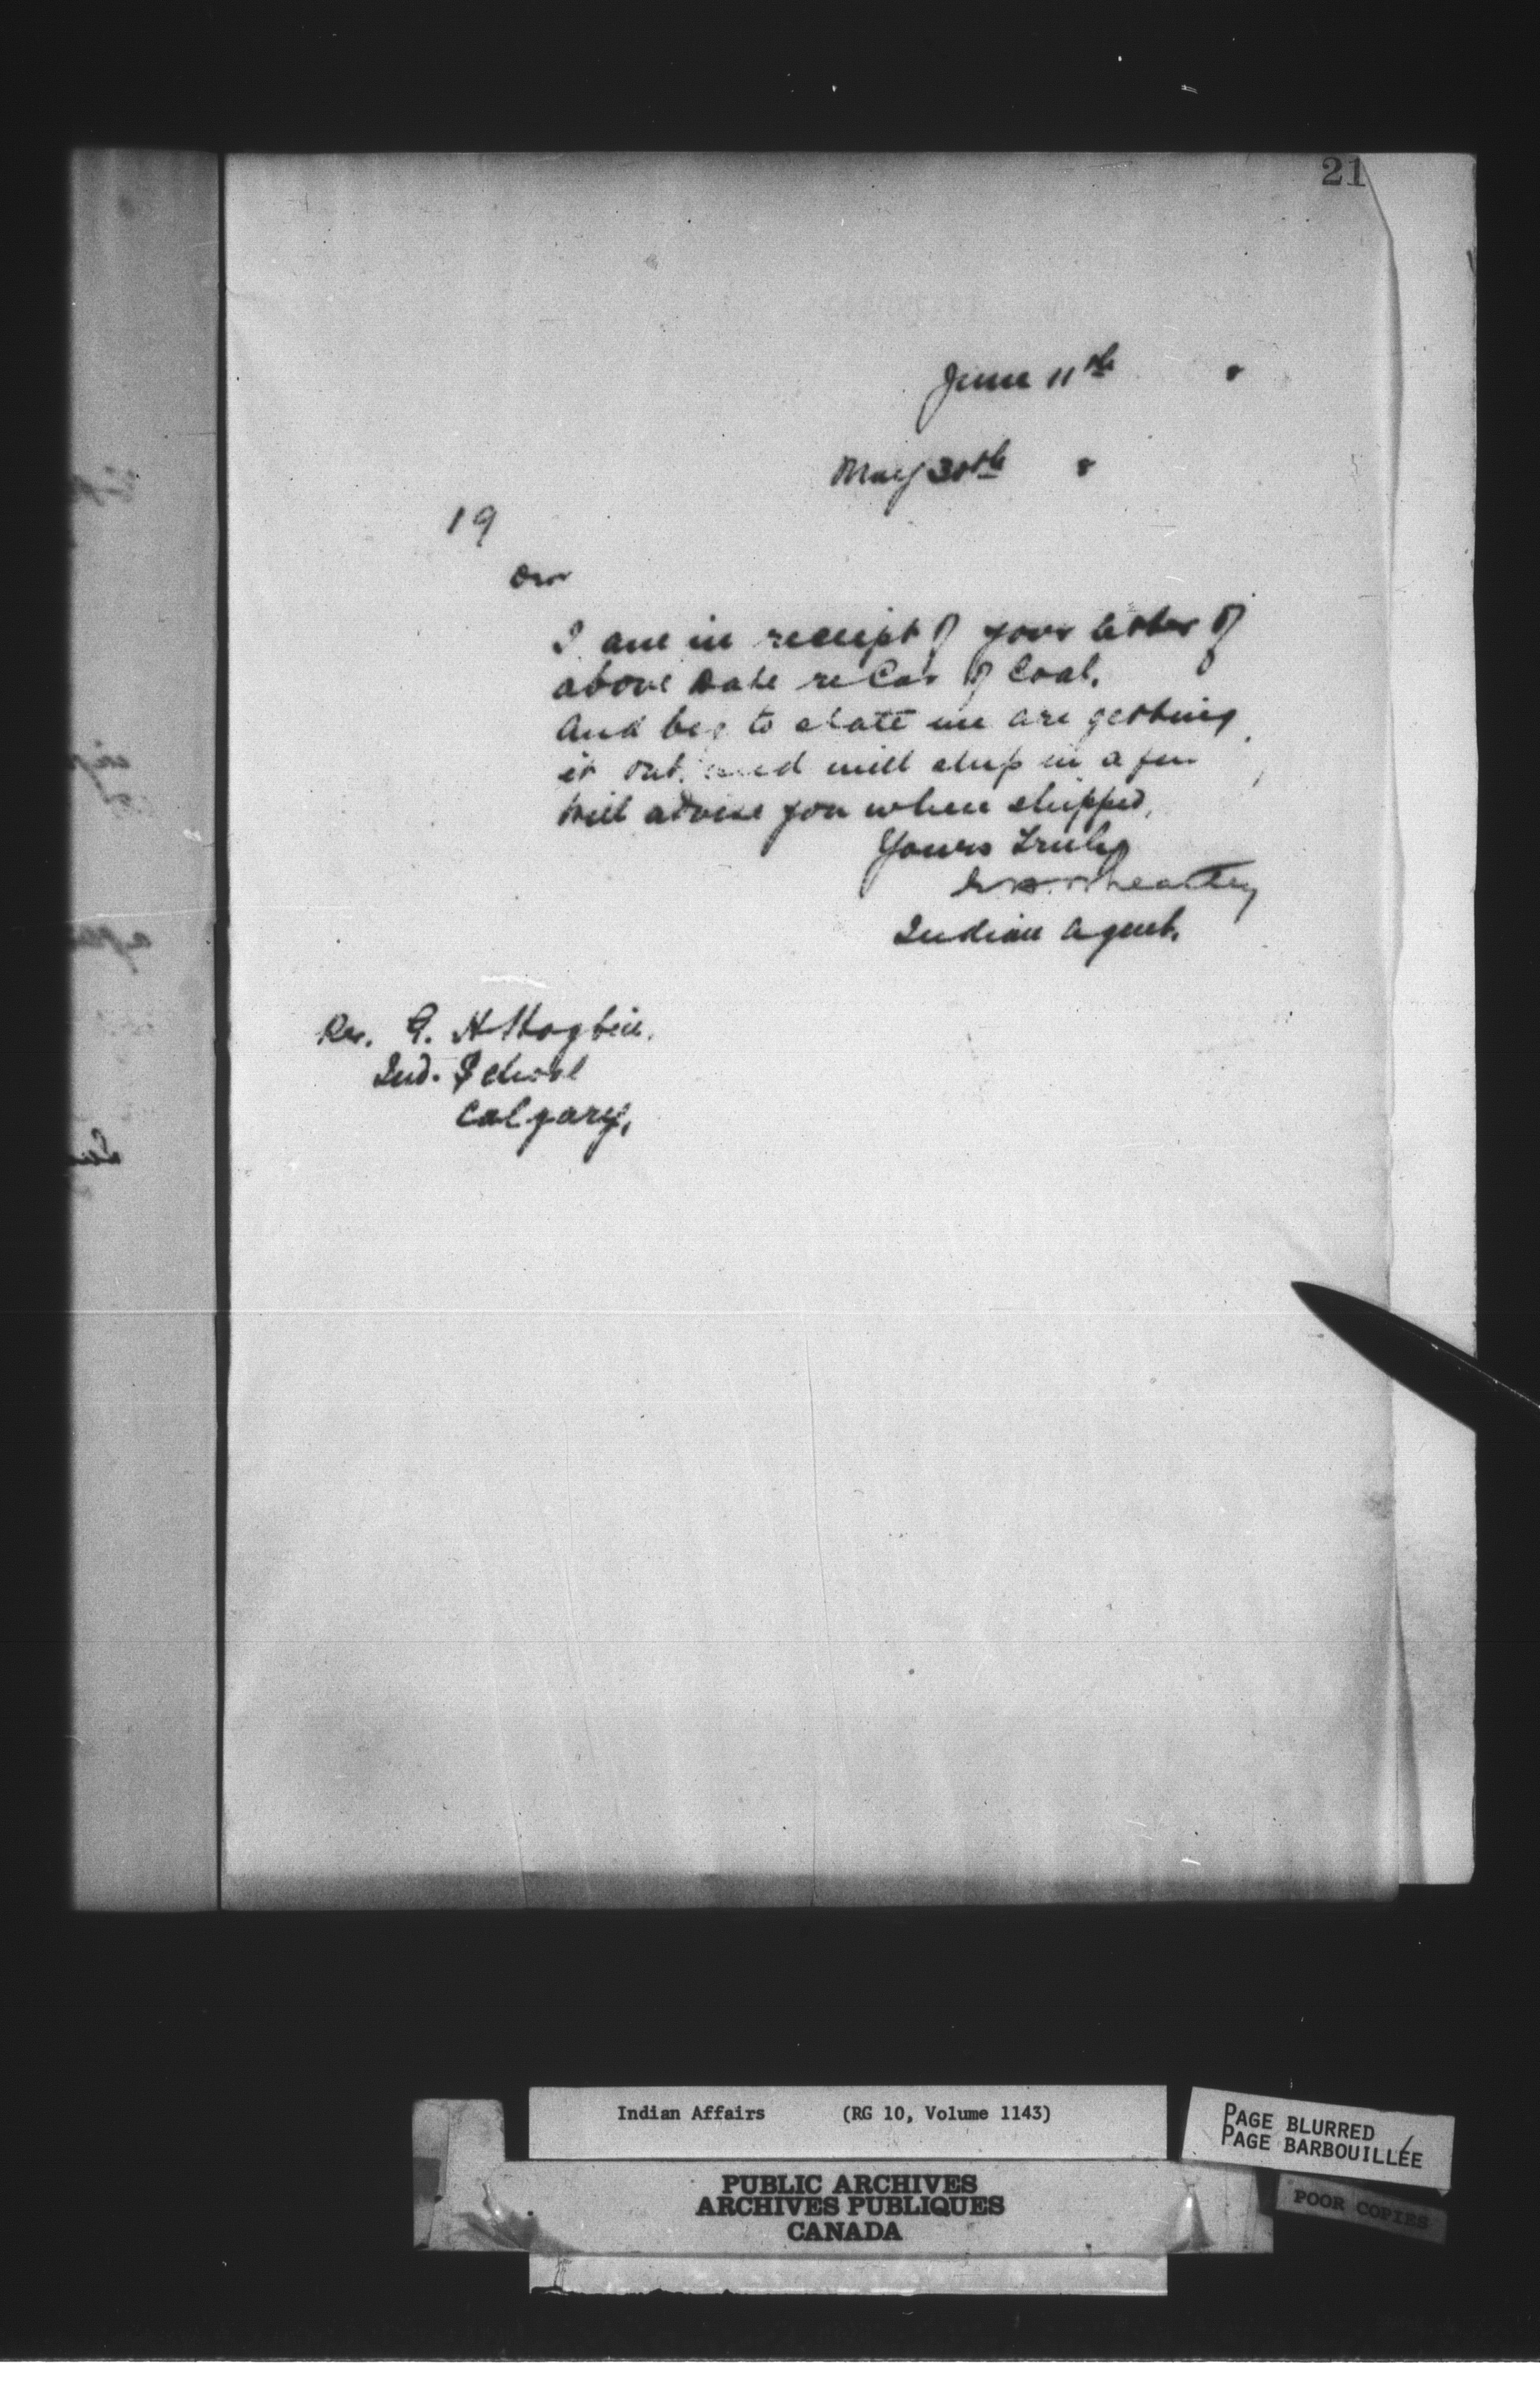 21
June 11th 8
May 30th 8
19
Sir
I am in receipt of your letter of
above date re Car of Coal.
And beg to state we are getting
it out, and will ship in a few
Will advise you when shipped,
Yours Truly
Wheatley
Indian Agent.
Rev. G. H Hogbin.
Ind. School
Calgary,
Indian Affairs (RG 10, Volume 1143)
PUBLIC ARCHIVES
ARCHIVES PUBLIQUES
CANADA
PAGE BLURRED
PAGE BARBOUILLÉE
POOR COPIES